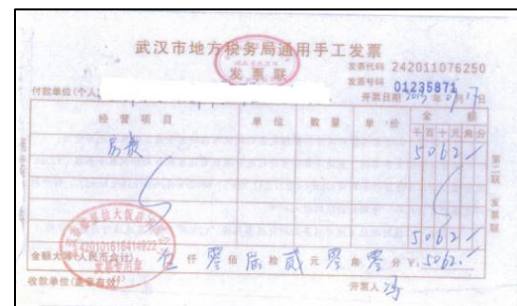 武汉市地方税务局通用手工发票
发票联
发票代码 242011076250
发票号码 01235871
付款单位(个人)
开票日期 年 月 日
经营项目 单位 数量 单价 金额
千 百 十 元 角 分
房费 5062
第二联 发票联
5062
420101616414922
发票专用章
金额大写(人民币合计) 伍 仟 零 佰 陆 拾 贰 元 零 角 零 分 ¥: 5062.
收款单位(盖章有效) 开票人 冯